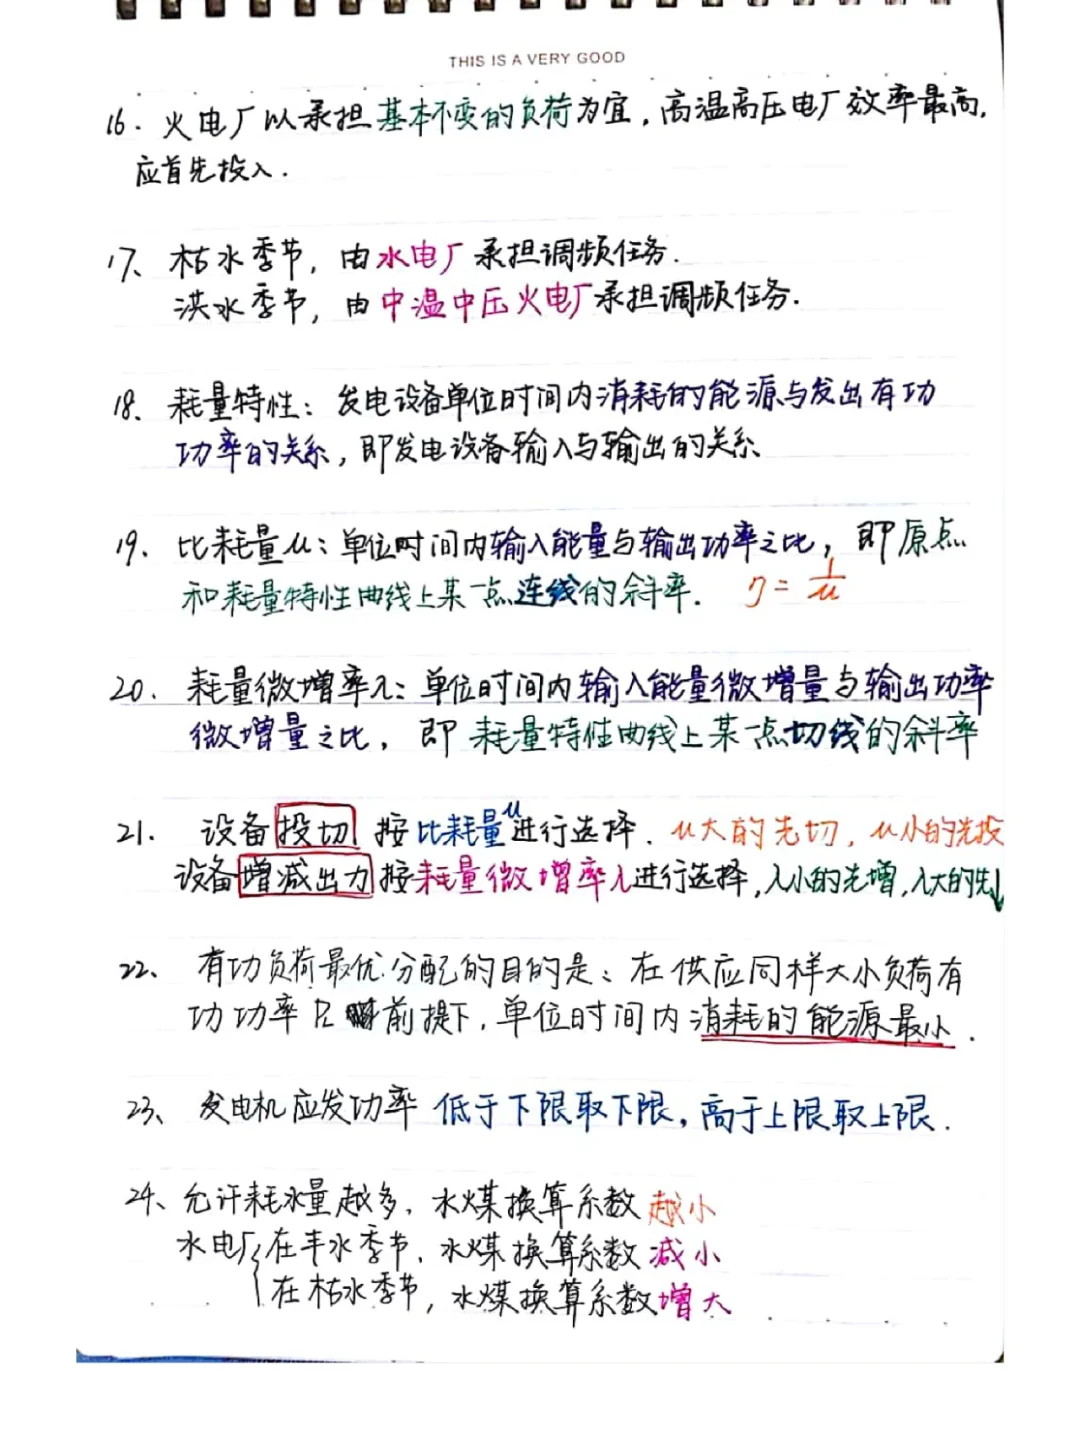 THIS IS A VERY GOOD
16. 火电厂以承担基本不变的负荷为宜，高温高压电厂效率最高，
应首先投入.
17、枯水季节，由水电厂承担调频任务.
洪水季节，由中温中压火电厂承担调频任务.
18、耗量特性：发电设备单位时间内消耗的能源与发出有功
功率的关系，即发电设备输入与输出的关系
19、比耗量μ：单位时间内输入能量与输出功率之比，即原点
和耗量特性曲线上某一点连线的斜率. η = 1/μ
20. 耗量微增率λ：单位时间内输入能量微增量与输出功率
微增量之比，即耗量特性曲线上某一点切线的斜率
21. 设备投切按比耗量μ进行选择. μ大的先切，μ小的先投
设备增减出力按耗量微增率λ进行选择，λ小的先增，λ大的先↓
22、有功负荷最优分配的目的是：在供应同样大小负荷有
功功率 前提下，单位时间内消耗的能源最小.
23、发电机应发功率低于下限取下限，高于上限取上限.
24、允许耗水量越多，水煤换算系数越小
水电厂{在丰水季节，水煤换算系数减小
在枯水季节，水煤换算系数增大